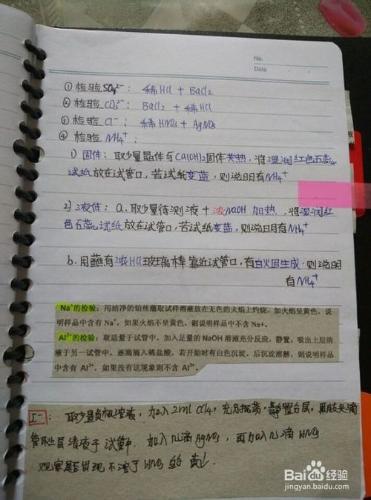 No.
Date
① 检验 SO₄²⁻: 稀HCl + BaCl₂
② 检验 CO₃²⁻: BaCl₂ + 稀HCl
③ 检验 Cl⁻: 稀HNO₃ + AgNO₃
④ 检验 NH₄⁺:
1) 固体: 取少量晶体与Ca(OH)₂固体共热, 将湿润红色石蕊
试纸放在试管口, 若试纸变蓝, 则说明有NH₄⁺
2) 液体: a. 取少量待测液 + 浓NaOH 加热, 将湿润红
色石蕊试纸放在试管口, 若试纸变蓝, 则说明有NH₄⁺
b. 用蘸有浓HCl玻璃棒靠近试管口, 有白烟生成, 则说明
有NH₄⁺
Na⁺的检验: 用洁净的铂丝蘸取试样溶液放在无色的火焰上灼烧, 如火焰呈黄色, 说
明样品中含有 Na⁺, 如果火焰不呈黄色, 则说明样品中不含 Na+.
Al³⁺的检验: 取适量于试管中, 加入足量的 NaOH 溶液充分反应, 静置, 吸出上层清
液于另一试管中, 逐滴滴入稀盐酸, 若开始时有白色沉淀, 后沉淀溶解, 则说明样品
中含有 Al³⁺. 如果没有这现象则不含 Al³⁺.
I⁻: 取少量 加入2ml CCl₄, 充分振荡, 静置分层, 用胶头滴
管取上层清液于试管, 加入几滴AgNO₃, 再加入几滴HNO₃
观察是否出现不溶于HNO₃的黄↓
Baidu 经验
jingyan.baidu.com